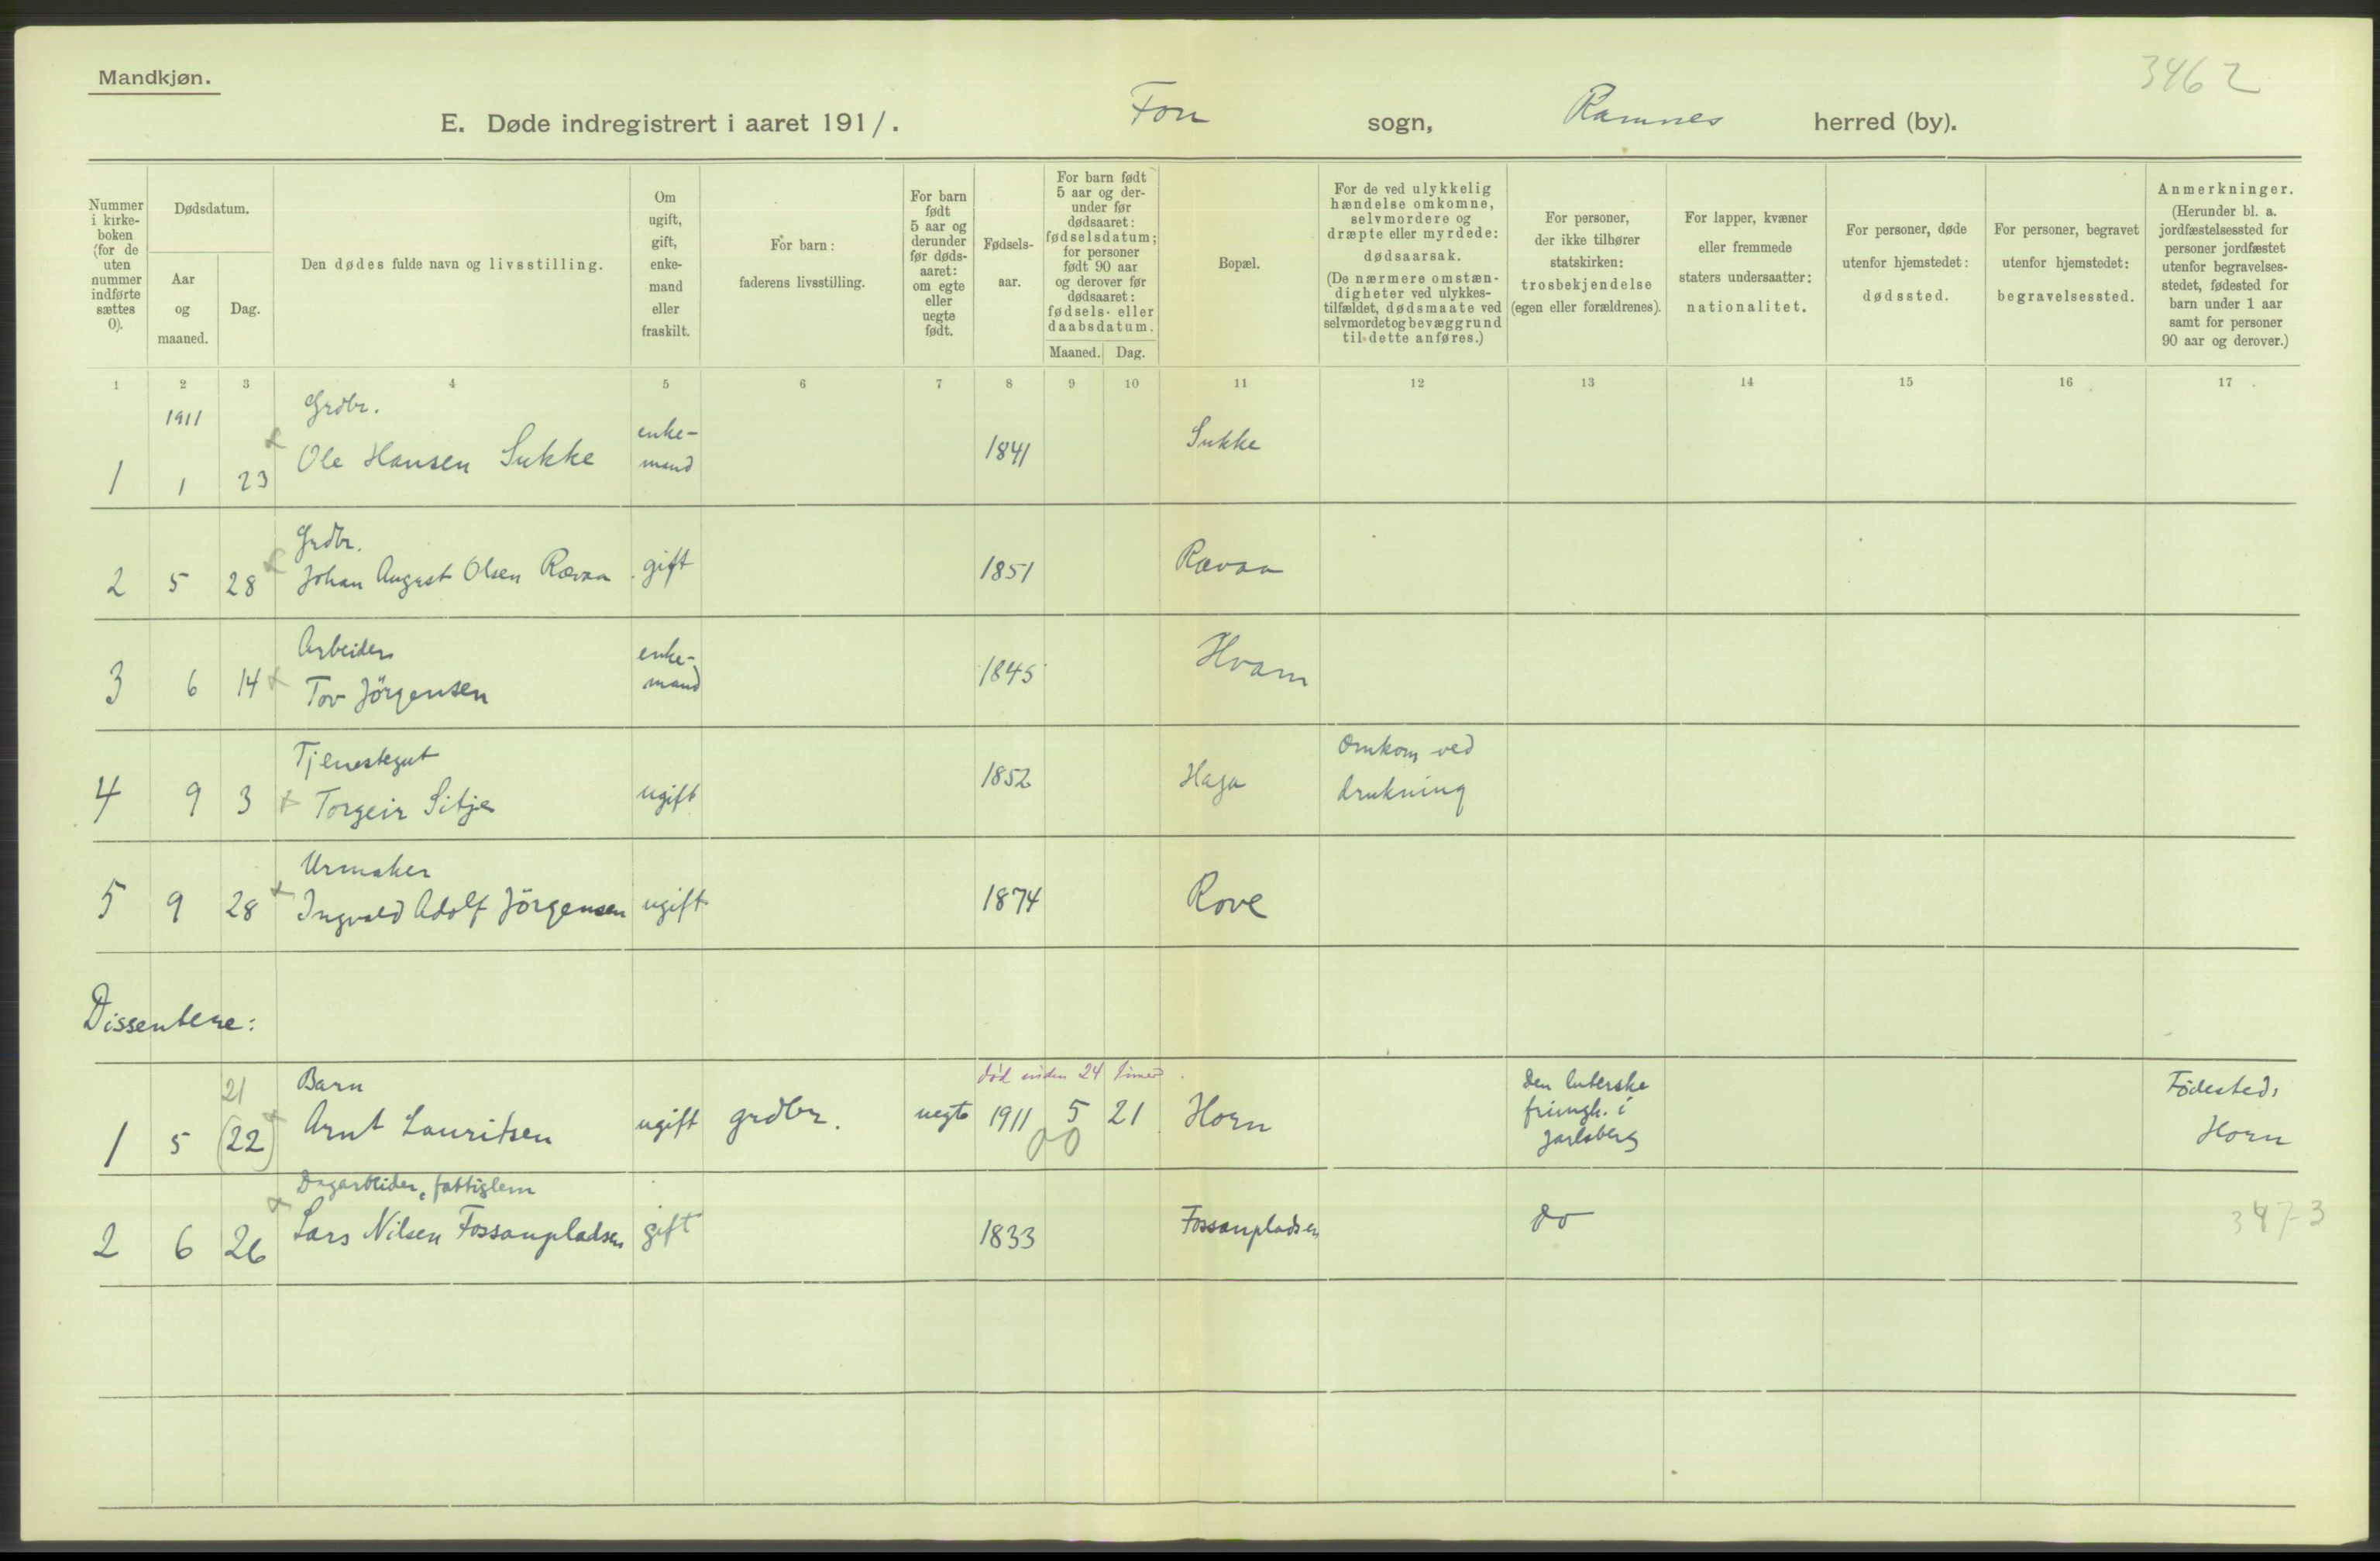 Mandkjøn.
3462
E. Døde indregistrert i aaret 1911. Fon sogn, Ramnes herred (by).
Nummer i kirke-boken (for de uten nummer indførte sættes 0).
Dødsdatum.
Aar og maaned.
Dag.
Den dødes fulde navn og livsstilling.
Om ugift, gift, enke-mand eller fraskilt.
For barn: faderens livsstilling.
For barn født 5 aar og derunder før døds-aaret: om egte eller uegte født.
Fødsels-aar.
For barn født 5 aar og der-under før dødsaaret: fødselsdatum; for personer født 90 aar og derover før dødsaaret: fødsels- eller daabsdatum.
Maaned. Dag.
Bopæl.
For de ved ulykkelig hændelse omkomne, selvmordere og dræpte eller myrdede: dødsaarsak. (De nærmere omstæn-digheter ved ulykkes-tilfældet, dødsmaate ved selvmord et og bevæggrund til dette anføres.)
For personer, der ikke tilhører statskirken: trosbekjendelse (egen eller forældrenes).
For lapper, kvæner eller fremmede staters undersaatter: nationalitet.
For personer, døde utenfor hjemstedet: dødssted.
For personer, begravet utenfor hjemstedet: begravelsessted.
Anmerkninger. (Herunder bl. a. jordfæstelsessted for personer jordfæstet utenfor begravelses-stedet, fødested for barn under 1 aar samt for personer 90 aar og derover.)
1 2 3 4 5 6 7 8 9 10 11 12 13 14 15 16 17
1911 Grdbr.
1 1 23 Ole Hansen Sukke enke-mand 1841 Sukke
Grdbr.
2 5 28 Johan August Olsen Rævaa gift 1851 Rævaa
Arbeider
3 6 14 Tov Jörgensen enke-mand 1845 Hvam
Tjenestegut
4 9 3 Torgeir Sitje ugift 1852 Haga Omkom ved drukning
Urmaker
5 9 28 Ingvald Adolf Jörgensen ugift 1874 Rove
Dissentere:
21 Barn død inden 24 timer
1 5 (22) Arnt Lauritsen ugift grdbr. uegte 1911 5 21 Horn Den luterske frimgh. i Jarlsberg Fødested: Horn
Dagarbeider, fattiglem
2 6 26 Lars Nilsen Fossanpladsen gift 1833 Fossanpladsen do
3473